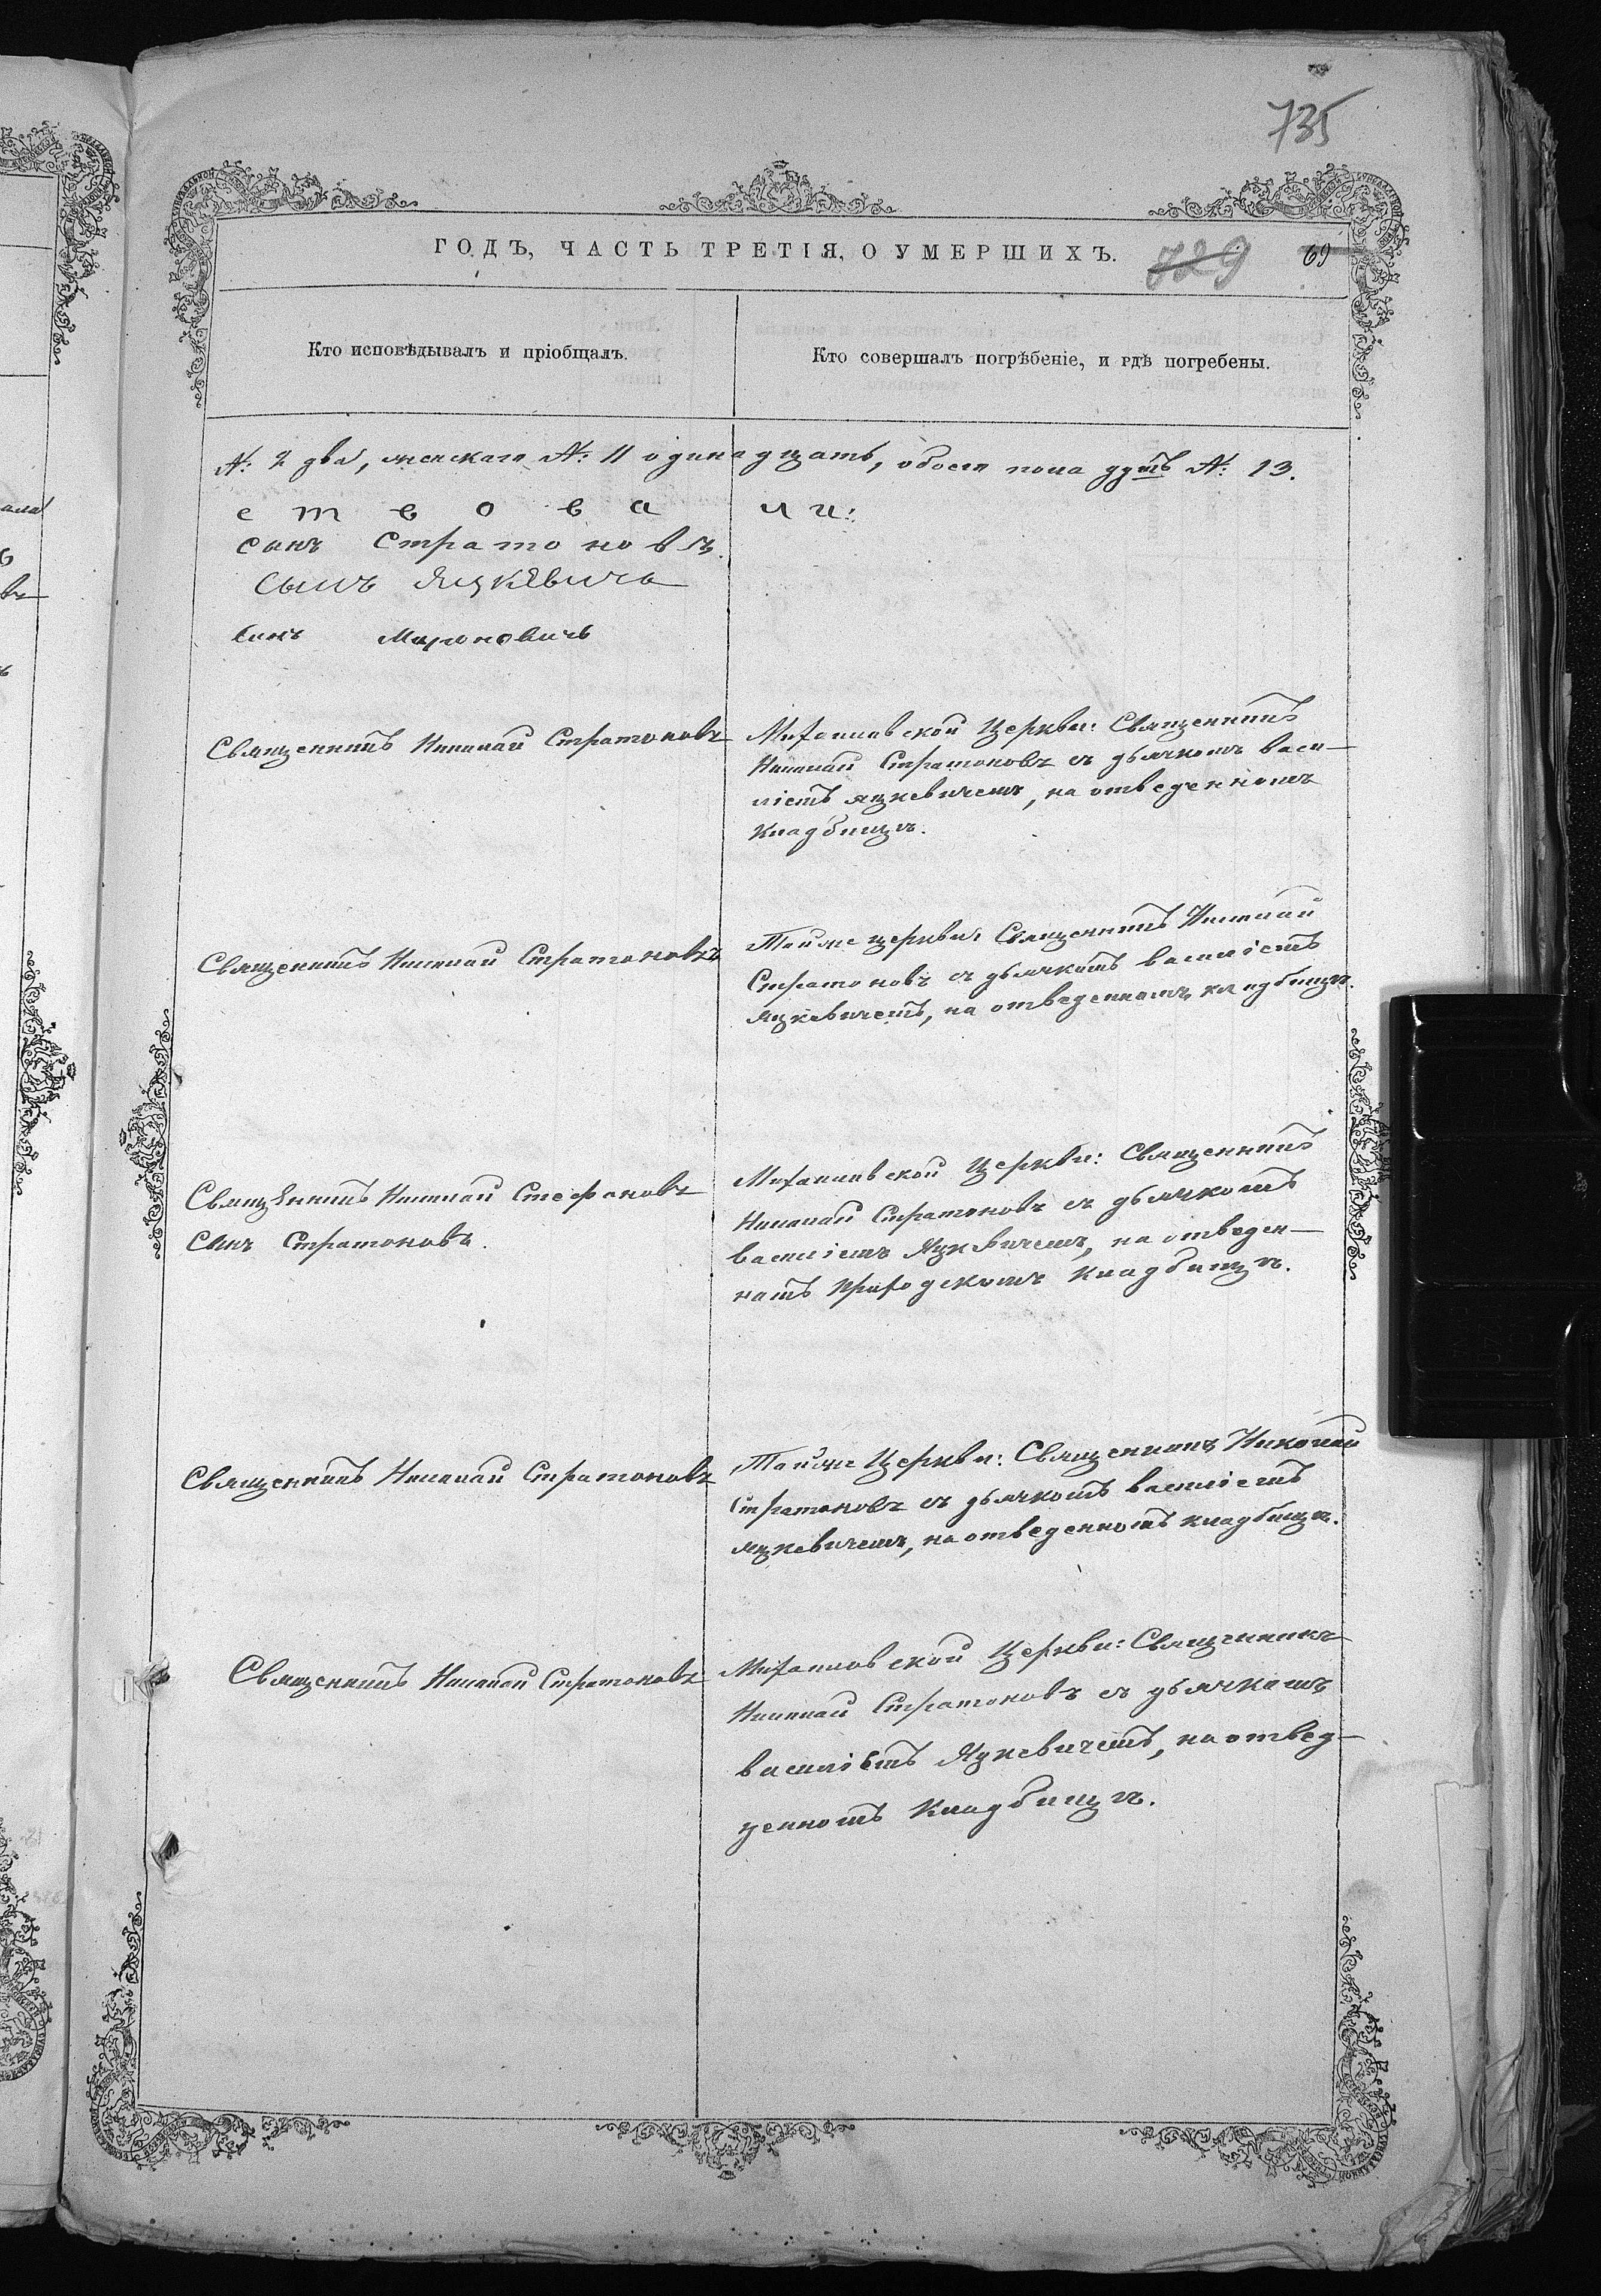 735
ГОДЪ, ЧАСТЬ ТРЕТІЯ, О УМЕРШИХЪ.
729 69
Кто исповѣдывалъ и пріобщалъ.
Кто совершалъ погрѣбеніе, и гдѣ погребены.
№: 2 два, женскаго №: 11 одинадцать, обоего пола душъ №: 13.
с т в о в а л и:
Стратоновъ
сынъ Яцкевича
Мироновичъ
Священникъ Николай Стратоновъ
Михаиловской Церкви: Священникъ
Николай Стратоновъ съ дьячкомъ Васи-
ліемъ Яцкевичемъ, на отведенномъ
кладбищѣ.
Священникъ Николай Стратоновъ
Тойже церкви Священникъ Николай
Стратоновъ съ дьячкомъ Василіемъ
Яцкевичемъ, на отведенномъ кладбищѣ.
Священникъ Николай Стефановъ
Стратоновъ.
Михаиловской Церкви: Священникъ
Николай Стратоновъ съ дьячкомъ
Василіемъ Яцкевичемъ, на отведен-
номъ приходскомъ кладбищѣ.
Священникъ Николай Стратоновъ
Тойже Церкви: Священникъ Николай
Стратоновъ съ дьячкомъ Василіемъ
Яцкевичемъ, на отведенномъ кладбищѣ.
Священникъ Николай Стратоновъ
Михаиловской Церкви: Священникъ
Николай Стратоновъ съ дьячкомъ
Василіемъ Яцкевичемъ, на отвед-
денномъ кладбищѣ.